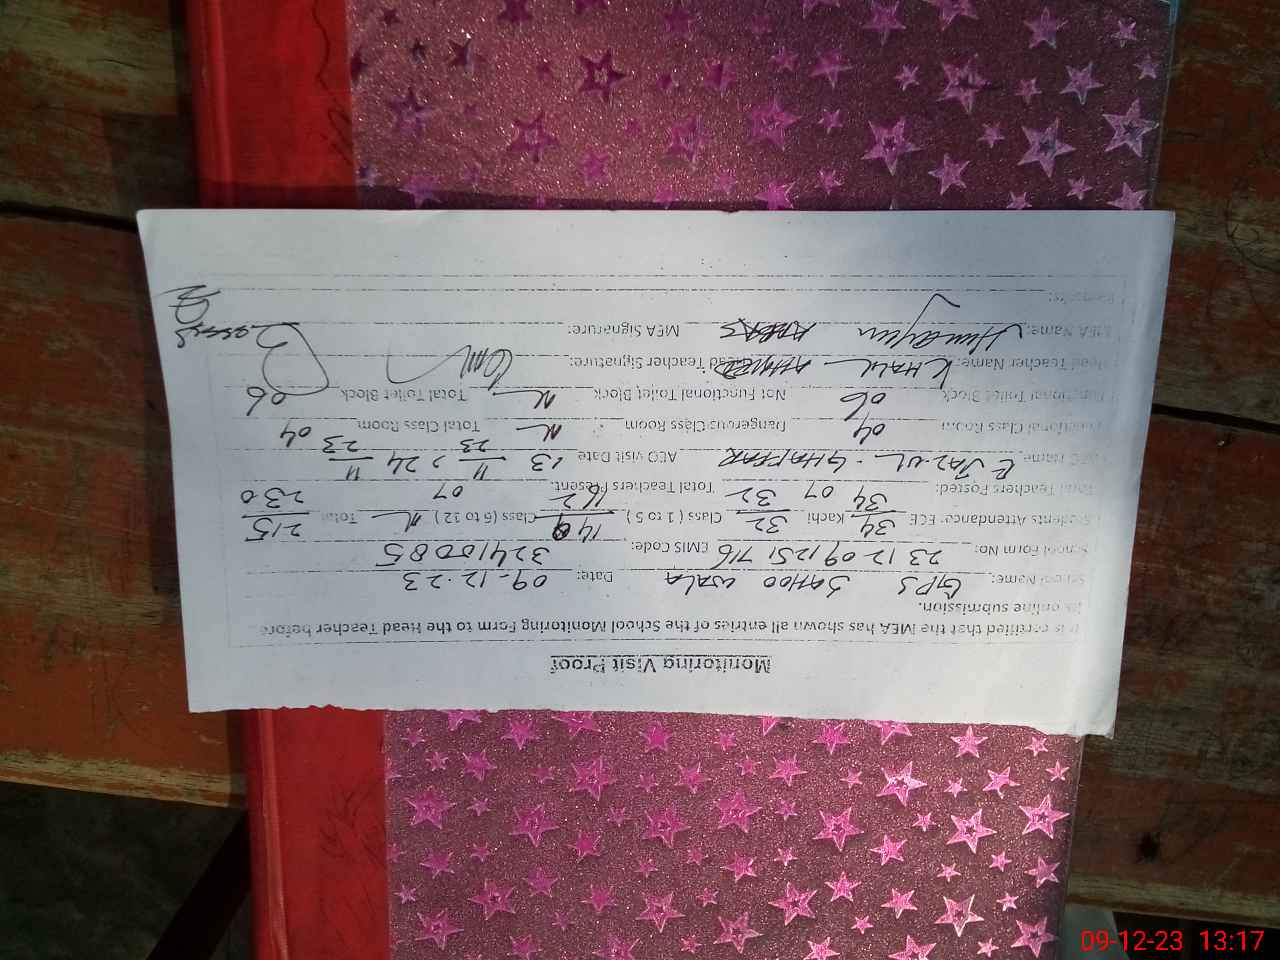 Monitoring Visit Proof
It is certified that the MEA has shown all entries of the School Monitoring Form to the Head Teacher before
its online submission.
School Name: GPS WALA Date: 09-12-23
School Form No: 23 12 09 1251 716 EMIS Code: 32410085
Students Attendance: ECE 34/34 Kachi 32/32 Class ( 1 to 5 ) 149/162 Class (6 to 12 ) Total 215/230
Total Teachers Posted: 07 Total Teachers Present: 07
AEO Name: GHAFFAR AEO visit Date 13 11/23 , 24 11/23
Functional Class Room 04 Dangerous Class Room Total Class Room 04
Functional Toilet Block 06 Not Functional Toilet Block Total Toilet Block 06
Head Teacher Name: KHALIL AHMED Head Teacher Signature:
MEA Name: Humayun ABBAS MEA Signature:
Remarks:
09-12-23 13:17